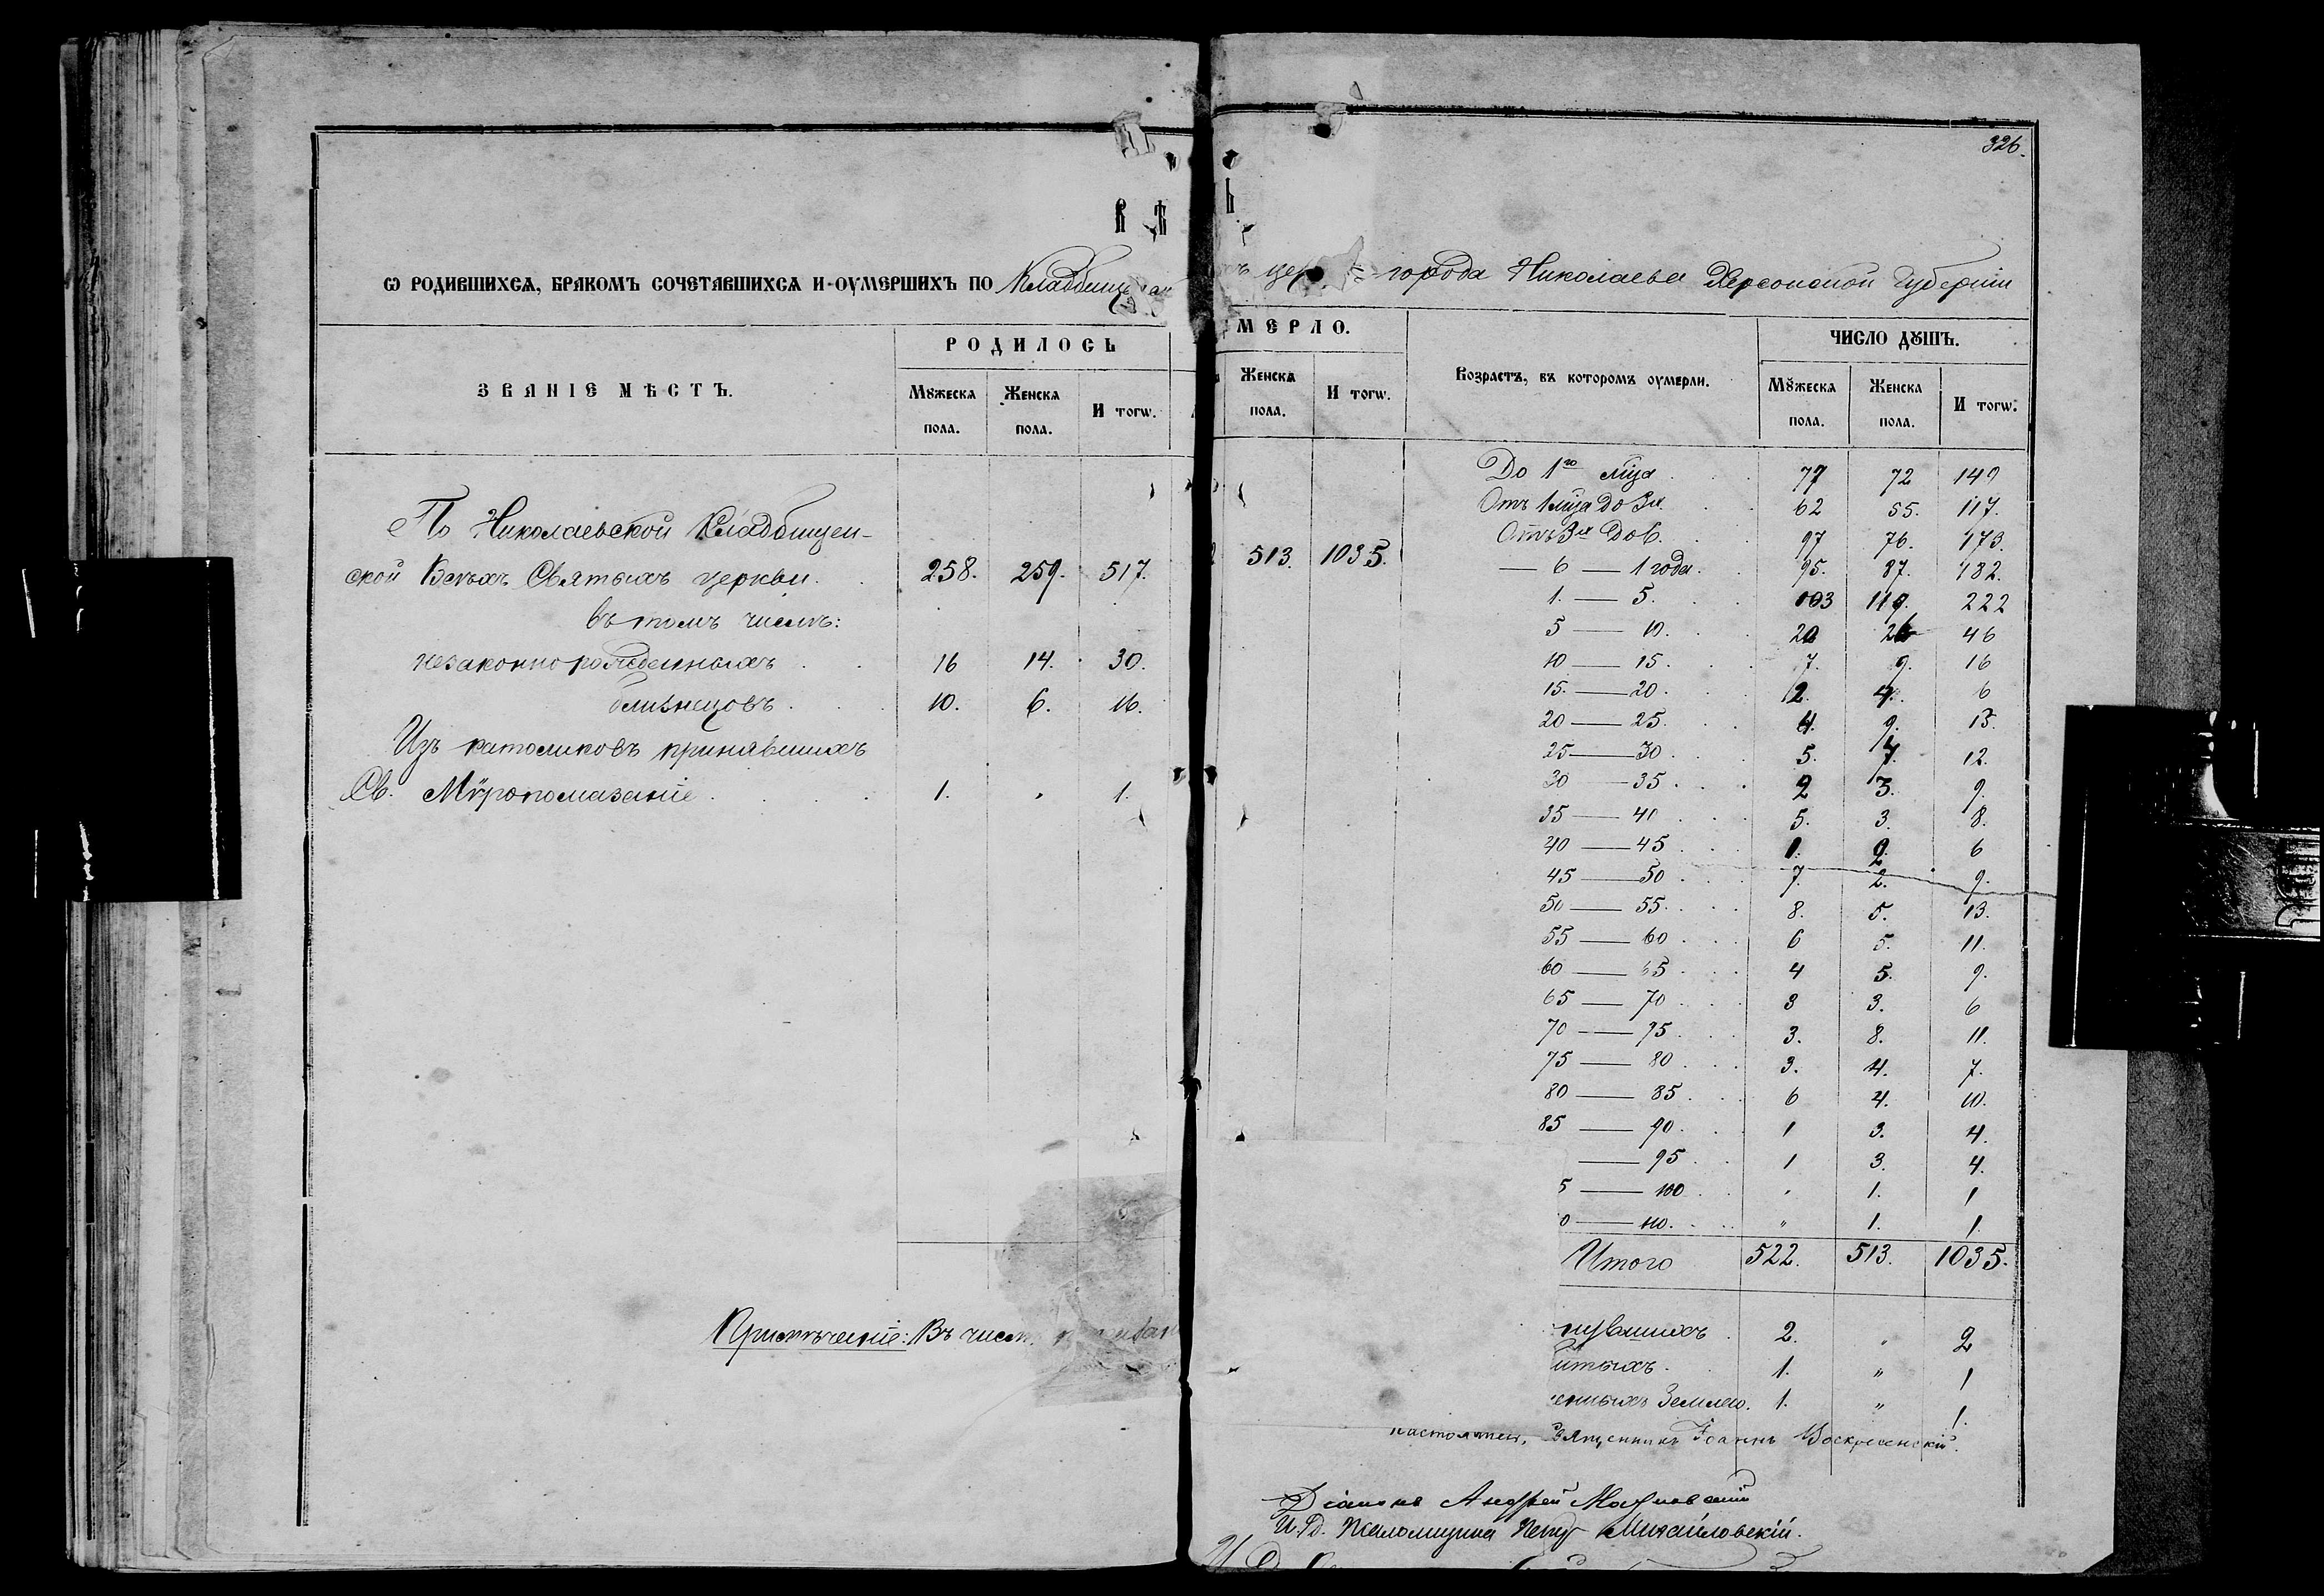 326.
ВѢ
Ь
Ѡ РОДИВШИХСѦ, БРАКОМЪ СОЧЕТАВШИХСѦ И ОУМЕРШИХЪ ПО
города Николаева Херсонской Губерніи
ЗВАНІЕ МѢСТЪ.
РОДИЛОСЬ
Мꙋжеска пола.
Женска пола.
И тогѡ.
По Николаевской Кладбищен-
ской Всѣхъ Святыхъ церкви. 258. 259. 517.
въ томъ числѣ:
незаконнорожденныхъ 16 14. 30.
близнецовъ. 10. 6. 16.
Изъ католиковъ принявшихъ
Св. Мѵропомазаніе 1. „ 1.
Примѣчаніе: Въ числѣ
МЕРЛО.
Женска пола.
И тогѡ.
513. 1035.
Возрастъ, въ которомъ оумерли.
ЧИСЛО ДꙊШЪ.
Мꙋжеска пола.
Женска пола.
И тогѡ.
До 1го мца 77 72 149
Отъ 1 мца до 3х 62 55. 117.
Отъ 3х до 6. 97 76. 173.
— 6 — 1 года. 95. 87. 182.
1. — 5. 103 119. 222
5 — 10. 20 26 46
10 — 15. 7. 9. 16
15. — 20. 2. 4. 6
20 — 25. 4. 9. 13.
25 — 30 5. 7. 12.
30 — 35. 3. 9.
35 — 40 5. 3. 8.
40 — 45 6
45 — 50 7. 2. 9.
50 — 55. 8. 5. 13.
55 — 60 6 5. 11.
60 — 65 4 5. 9.
65 — 70 3 3. 6
70 — 75. 3. 8. 11.
75 — 80 3. 4. 7.
80 — 85 6 4. 10.
85 — 90. 1 3. 4.
— 95 1 3. 4.
5 — 100 „ 1. 1
0 — 110. „ 1. 1.
Итого 522. 513. 1035.
нувшихъ 2. „ 2
итыхъ. 1. „ 1
енныхъ Землею. 1. „ 1.
Настоятель, Священникъ Іоаннъ Воскресенскій.
Діаконъ Андрей
И. д. Псаломщика Петръ Михайловскій.